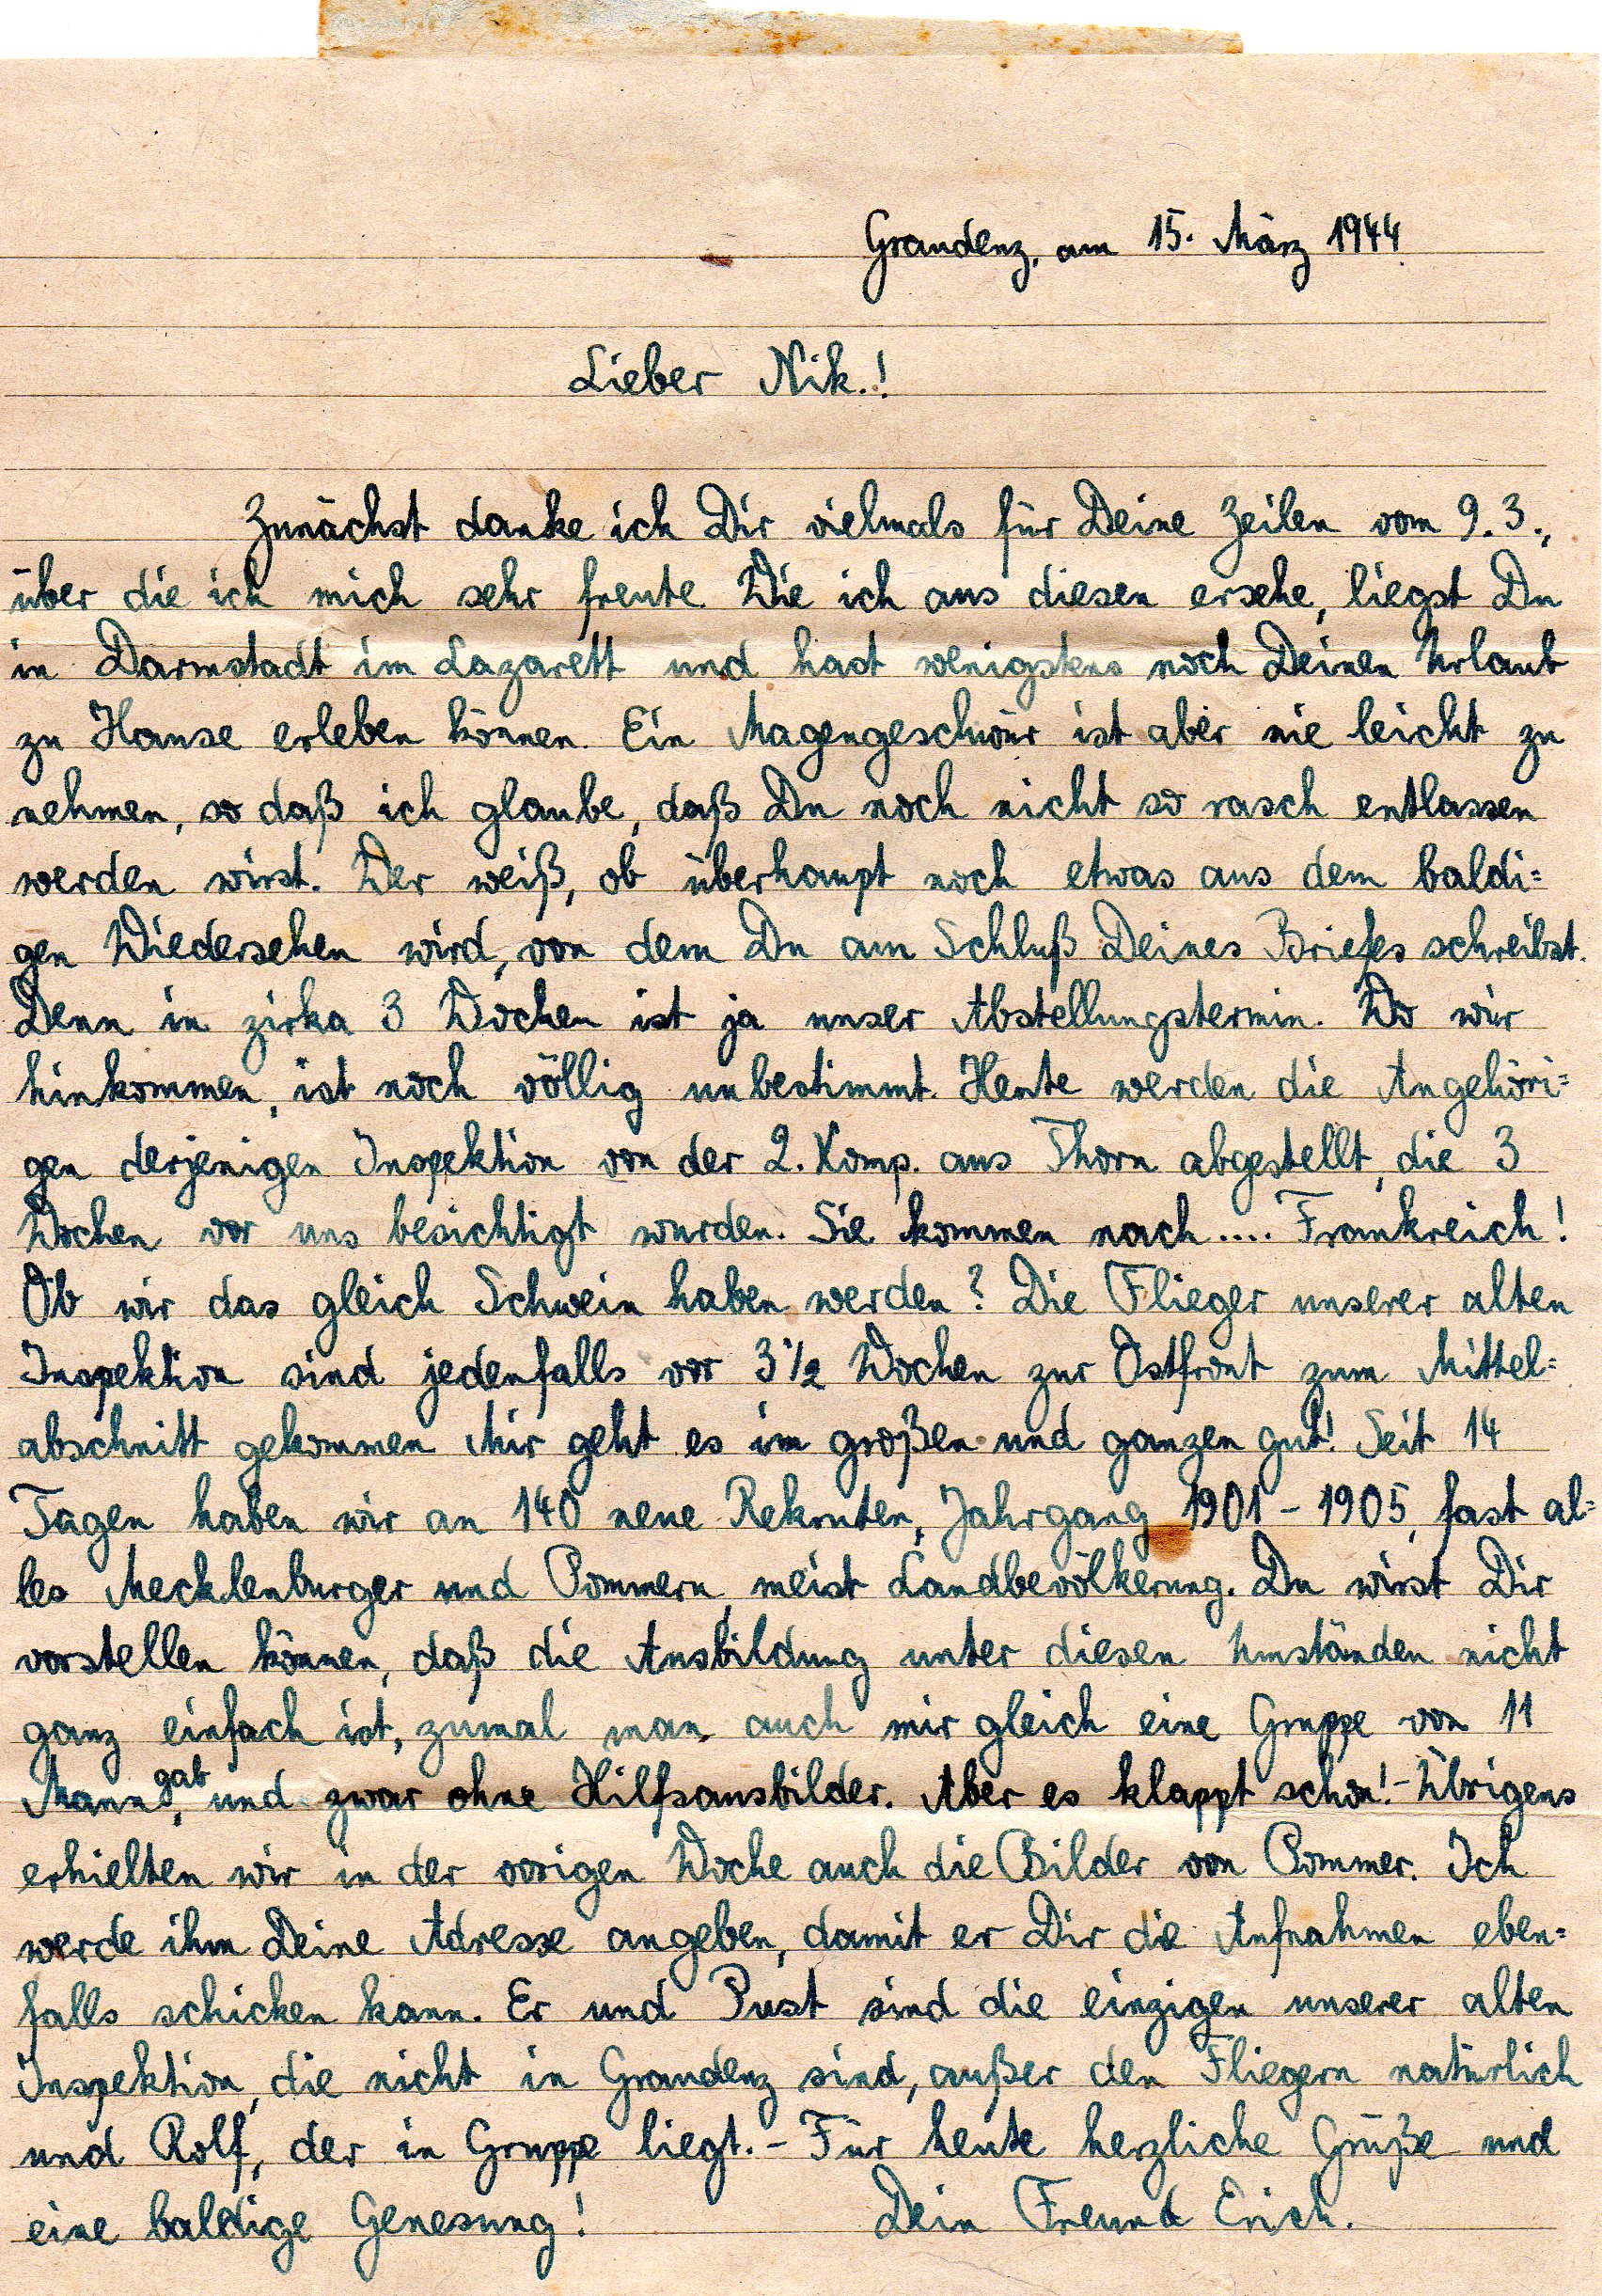 Graudenz, am 15. März 1944
Lieber Nik.!
Zunächst danke ich Dir vielmals für Deine Zeilen vom 9.3.,
über die ich mich sehr freute. Wie ich aus diesen ersehe, liegst Du
in Darmstadt im Lazarett und hast wenigstens noch Deinen Urlaub
zu Hause erleben können. Ein Magengeschwür ist aber nie leicht zu
nehmen, so daß ich glaube, daß Du noch nicht so rasch entlassen
werden wirst. Wer weiß, ob überhaupt noch etwas aus dem baldi=
gen Wiedersehen wird, von dem Du am Schluß Deines Briefes schreibst.
Denn in zirka 3 Wochen ist ja unser Abstellungstermin. Wo wir
hinkommen, ist noch völlig unbestimmt. Heute werden die Angehöri=
gen derjenigen Inspektion von der 2. Komp. aus Thorn abgestellt, die 3
Wochen vor uns besichtigt wurden. Sie kommen nach.... Frankreich!
Ob wir das gleich Schwein haben werden? Die Flieger unserer alten
Inspektion sind jedenfalls vor 3 1/2 Wochen zur Ostfront zum Mittel=
abschnitt gekommen. Mir geht es im großen und ganzen gut! Seit 14
Tagen haben wir an 140 neue Rekruten, Jahrgang 1901 - 1905, fast al=
les Mecklenburger und Pommern, meist Landbevölkerung. Du wirst Dir
vorstellen können, daß die Ausbildung unter diesen Umständen nicht
ganz einfach ist, zumal man auch mir gleich eine Gruppe von 11
Mann gab, und zwar ohne Hilfsausbilder. Aber es klappt schon! - Übrigens
erhielten wir in der vorigen Woche auch die Bilder von Pommer. Ich
werde ihm Deine Adresse angeben, damit er Dir die Aufnahmen eben=
falls schicken kann. Er und Pust sind die einzigen unserer alten
Inspektion, die nicht in Graudenz sind, außer den Fliegern natürlich
und Rolf, der in Gruppe liegt. - Für heute herzliche Grüße und
eine baldige Genesung! Dein Freund Erich.